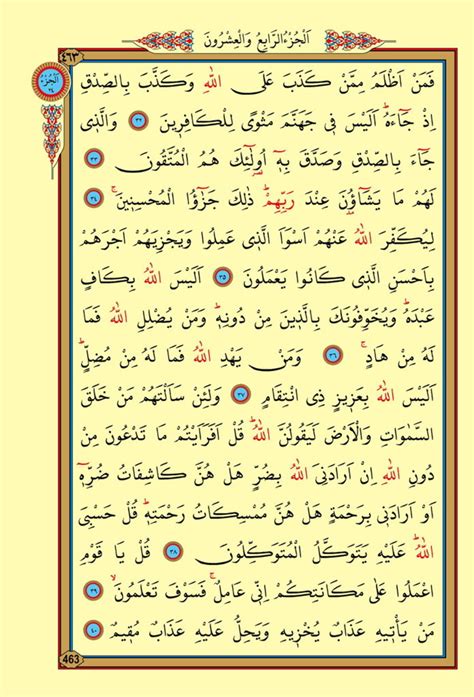 اَلْجُزْءُ الرَّابِعُ وَالْعِشْرُونَ
٤٦٣
اَلْجُزْءُ
٢٤
فَمَنْ اَظْلَمُ مِمَّنْ كَذَبَ عَلَى اللّٰهِ وَكَذَّبَ بِالصِّدْقِ
اِذْ جَٓاءَهُۜ اَلَيْسَ ف۪ي جَهَنَّمَ مَثْوًى لِلْكَافِر۪ينَ ٣٢ وَالَّذ۪ي
جَٓاءَ بِالصِّدْقِ وَصَدَّقَ بِه۪ٓ اُو۬لٰٓئِكَ هُمُ الْمُتَّقُونَ ٣٣
لَهُمْ مَا يَشَٓاؤُ۫نَ عِنْدَ رَبِّهِمْۜ ذٰلِكَ جَزٰٓؤُا الْمُحْسِن۪ينَۚ ٣٤
لِيُكَفِّرَ اللّٰهُ عَنْهُمْ اَسْوَاَ الَّذ۪ي عَمِلُوا وَيَجْزِيَهُمْ اَجْرَهُمْ
بِاَحْسَنِ الَّذ۪ي كَانُوا يَعْمَلُونَ ٣٥ اَلَيْسَ اللّٰهُ بِكَافٍ
عَبْدَهُۜ وَيُخَوِّفُونَكَ بِالَّذ۪ينَ مِنْ دُونِه۪ۜ وَمَنْ يُضْلِلِ اللّٰهُ فَمَا
لَهُ مِنْ هَادٍۚ ٣٦ وَمَنْ يَهْدِ اللّٰهُ فَمَا لَهُ مِنْ مُضِلٍّۜ
اَلَيْسَ اللّٰهُ بِعَز۪يزٍ ذِي انْتِقَامٍ ٣٧ وَلَئِنْ سَاَلْتَهُمْ مَنْ خَلَقَ
السَّمٰوَاتِ وَالْاَرْضَ لَيَقُولُنَّ اللّٰهُۜ قُلْ اَفَرَاَيْتُمْ مَا تَدْعُونَ مِنْ
دُونِ اللّٰهِ اِنْ اَرَادَنِيَ اللّٰهُ بِضُرٍّ هَلْ هُنَّ كَاشِفَاتُ ضُرِّه۪ٓ
اَوْ اَرَادَن۪ي بِرَحْمَةٍ هَلْ هُنَّ مُمْسِكَاتُ رَحْمَتِه۪ۜ قُلْ حَسْبِيَ
اللّٰهُۜ عَلَيْهِ يَتَوَكَّلُ الْمُتَوَكِّلُونَ ٣٨ قُلْ يَا قَوْمِ
اعْمَلُوا عَلٰى مَكَانَتِكُمْ اِنّ۪ي عَامِلٌۚ فَسَوْفَ تَعْلَمُونَۙ ٣٩
مَنْ يَأْت۪يهِ عَذَابٌ يُخْز۪يهِ وَيَحِلُّ عَلَيْهِ عَذَابٌ مُق۪يمٌ ٤٠
463